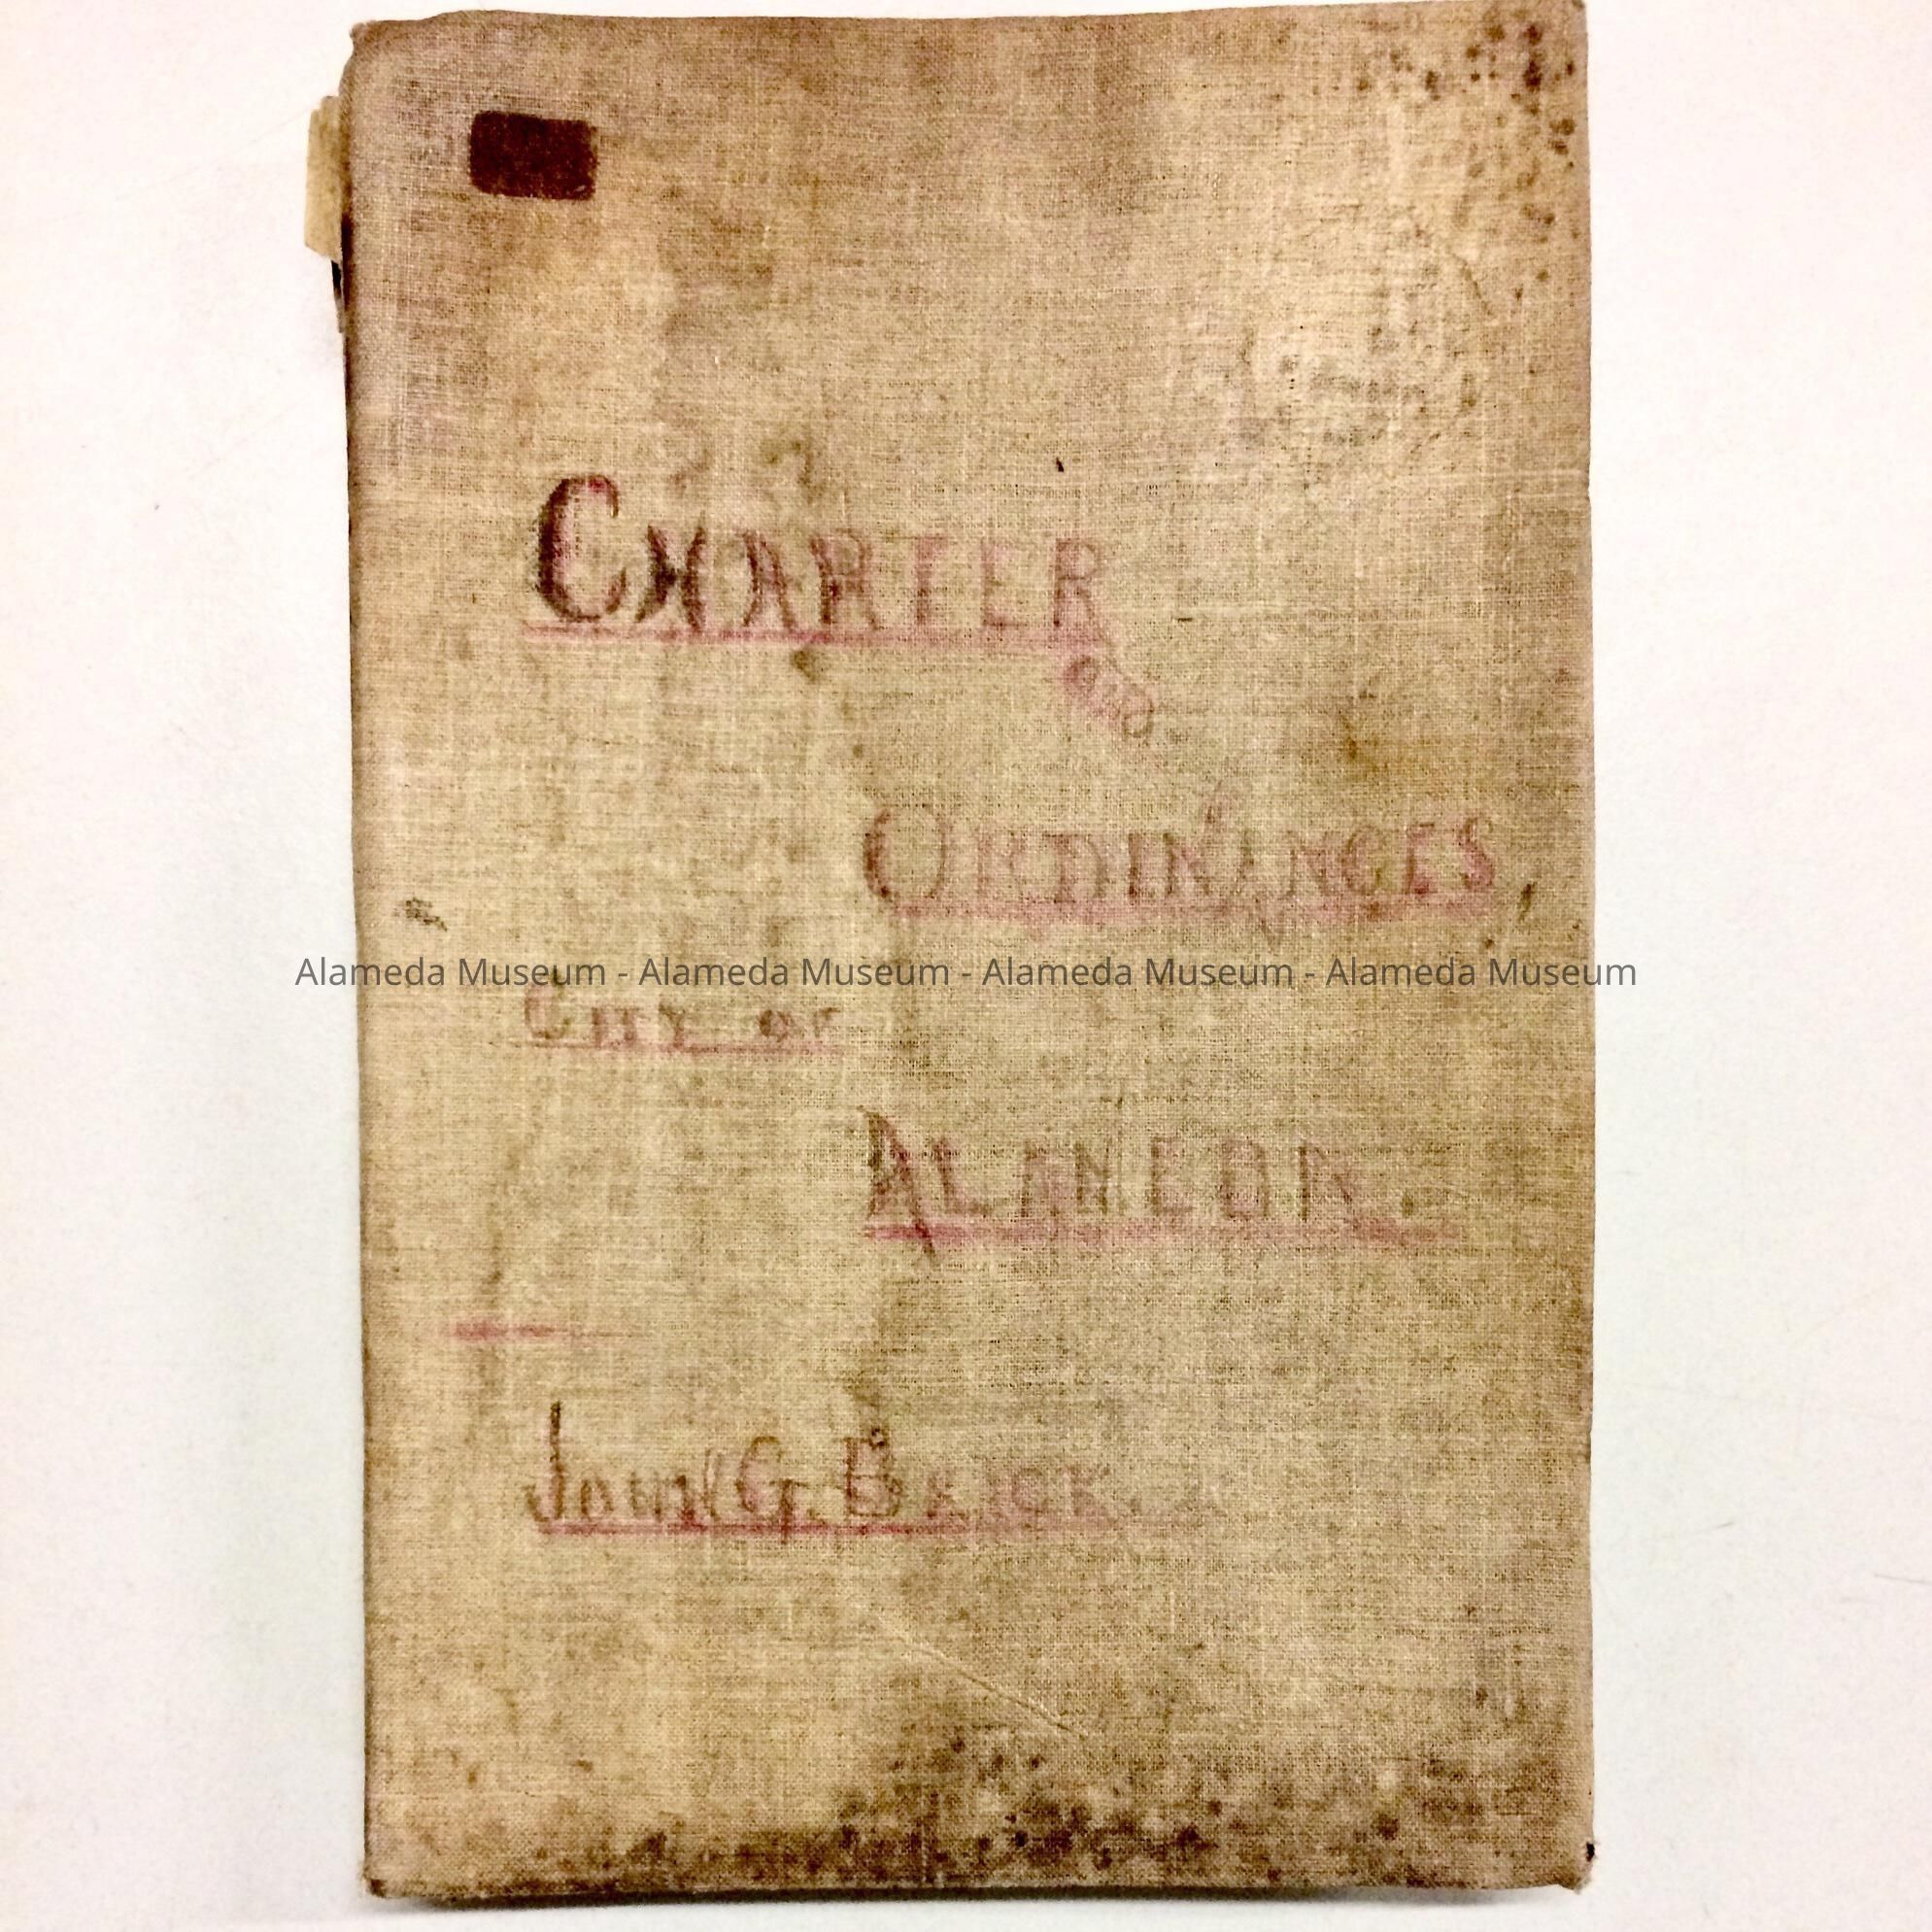 CHARTER
and
ORDINANCES
Alameda Museum - Alameda Museum - Alameda Museum - Alameda Museum
CITY OF
ALAMEDA.
JOHN G. BRICK